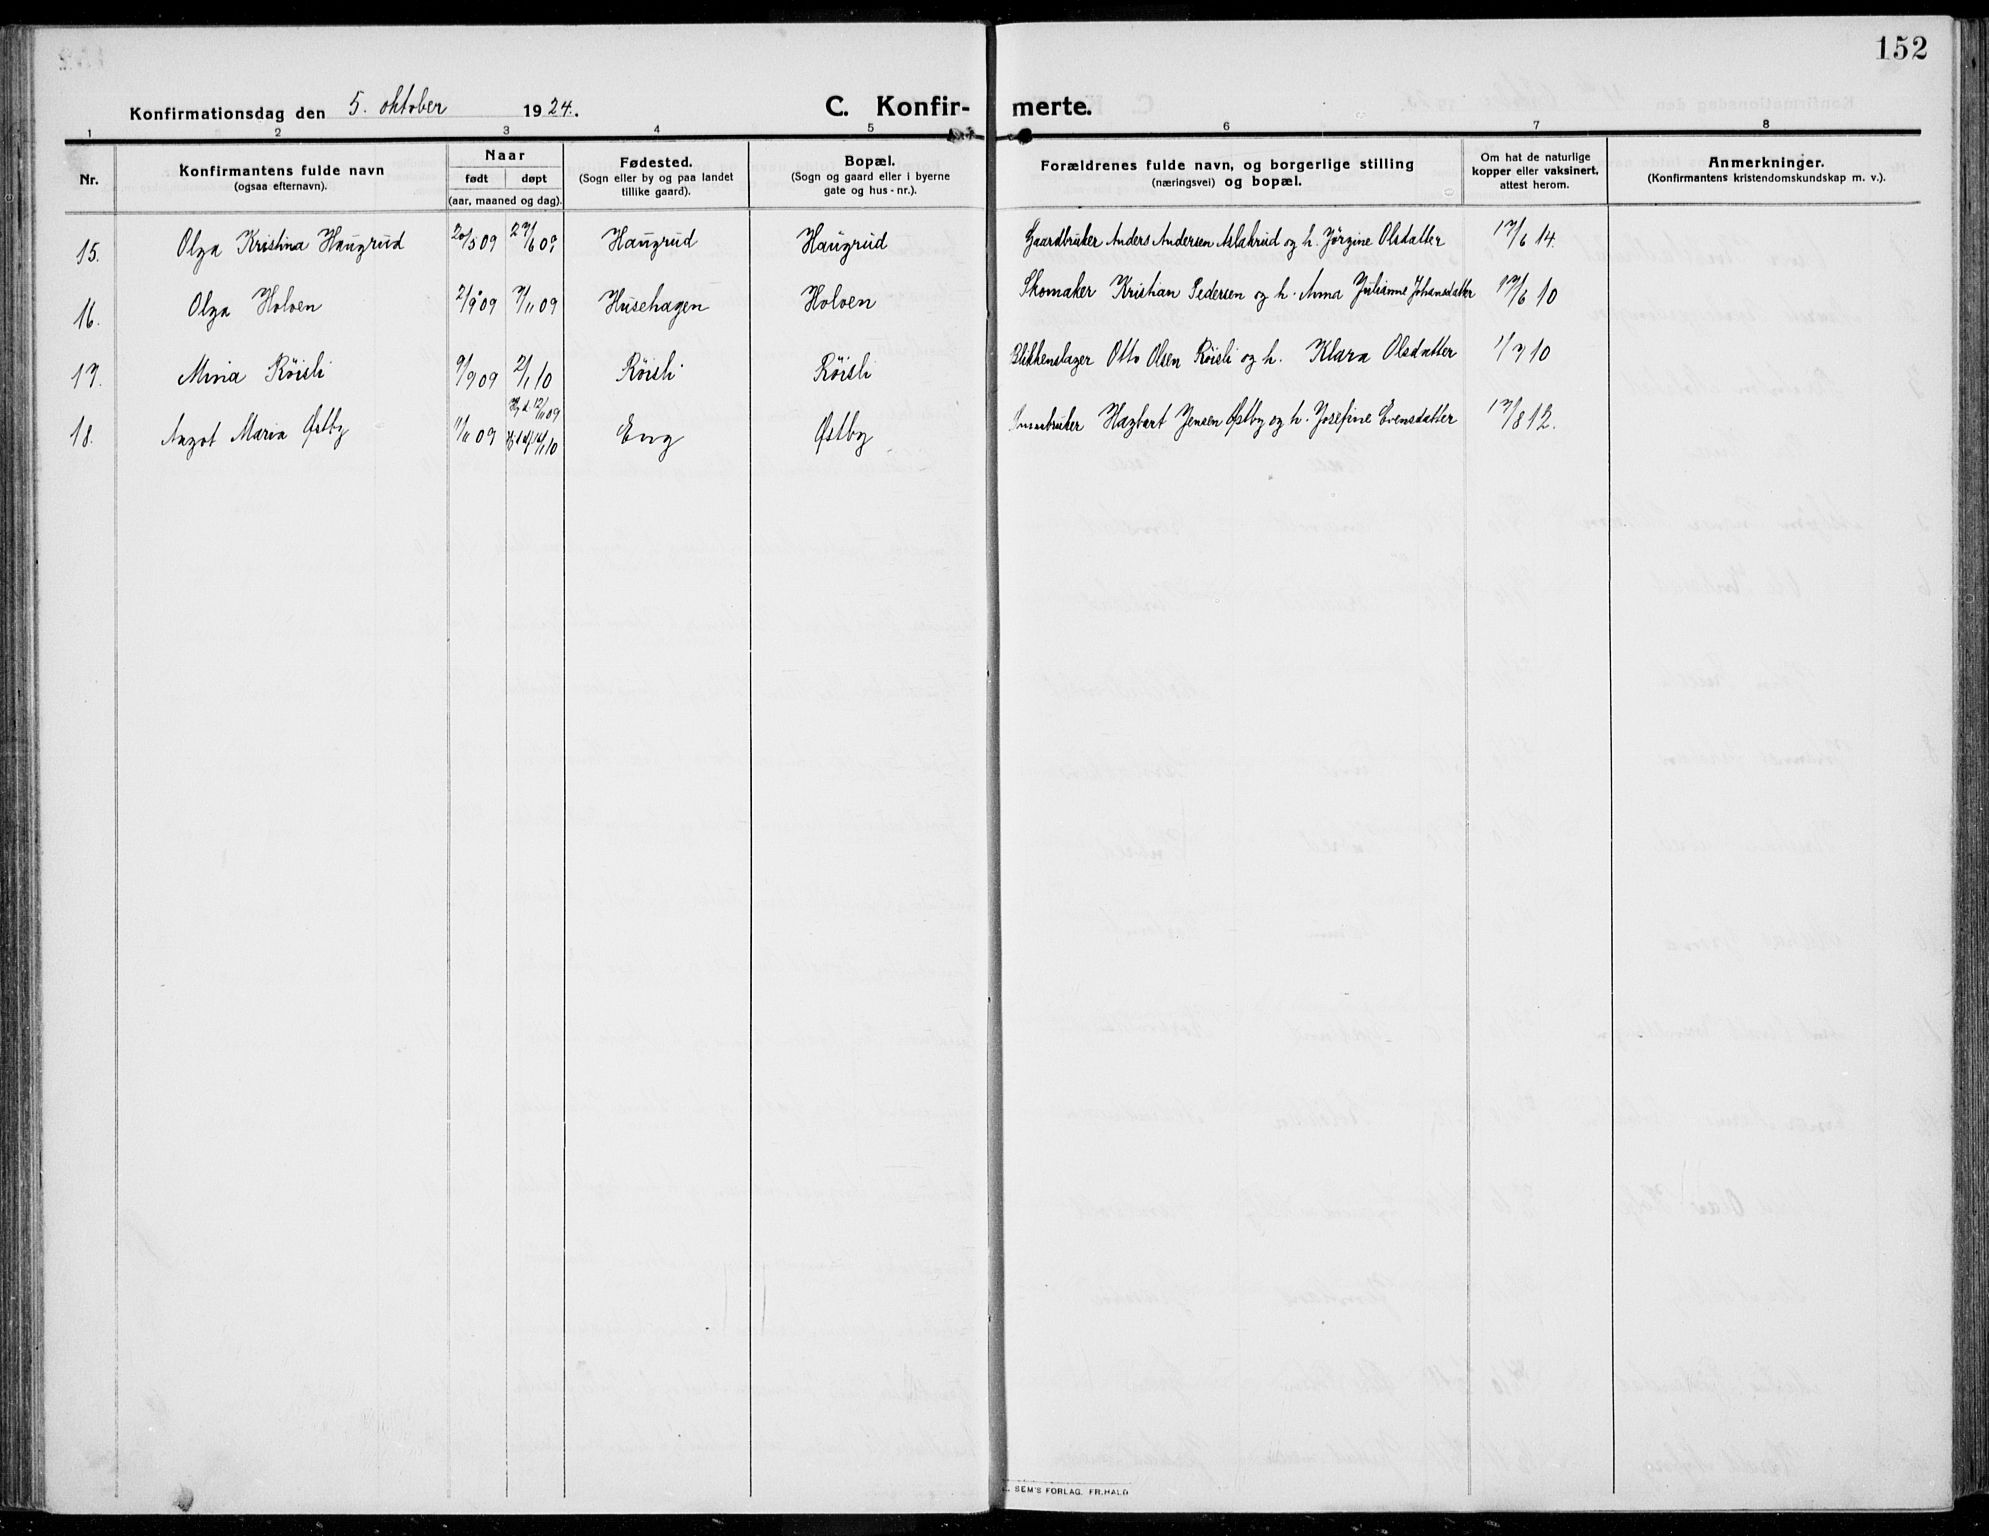 152
Konfirmationsdag den 5. oktober 1924.
C. Konfir- merte.
1 2 3 4 5 6 7 8
Nr.
Konfirmantens fulde navn
(ogsaa efternavn).
Naar
født døpt
(aar, maaned og dag).
Fødested.
(Sogn eller by og paa landet
tillike gaard).
Bopæl.
(Sogn og gaard eller i byerne
gate og hus-nr.).
Forældrenes fulde navn, og borgerlige stilling
(næringsvei) og bopæl.
Om hat de naturlige
kopper eller vaksinert,
attest herom.
Anmerkninger.
(Konfirmantens kristendomskundskap m. v.).
15. Olga Kristina Haugrud 20/5 09 27/6 09 Haugrud Haugrud Gaardbruker Anders Andersen Aslakrud og h. Jörgine Olsdatter 17/6 14.
16. Olga Holven 2/9 09 7/11 09 Husehagen Holven Skomaker Kristian Pedersen og h. Anna Julianne Johansdatter 17/6 10
17. Mina Röisli 9/9 09 2/1 10 Röisli Röisli Blikkenslager Otto Olsen Röisli og h. Klara Olsdatter 1/7 10
18. Angot Maria Østby 11/11 09 Hj. d. 12/11 09 Eng Østby Hagbart Jensen Østby og h. Josefine Evensdatter 17/8 12.
SEM'S FORLAG. FR. HALD